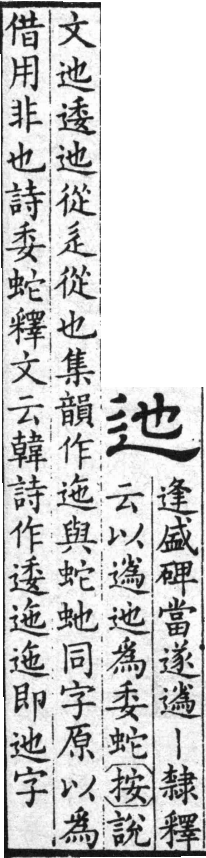 迆
逢盛碑當遂丨隸釋
云以迆為委蛇按說
文迆逶迆從辵從也集韻作迤與蛇虵同字原以為
借用非也詩委蛇釋文云韓詩作逶迤迤即迆字